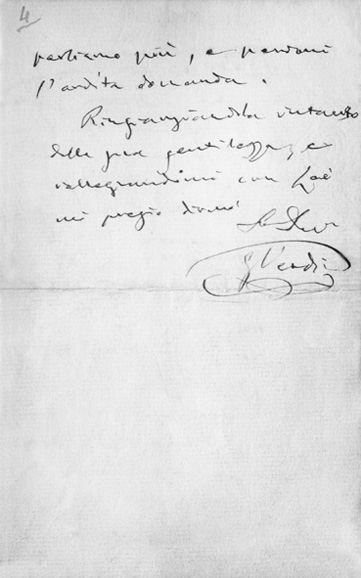 4
parliamo più, e perdoni
l'ardita domanda.
Ringraziandola intanto
della sua gentilezza, e
rallegrandomi con Lei
mi pregio dirmi
G Verdi